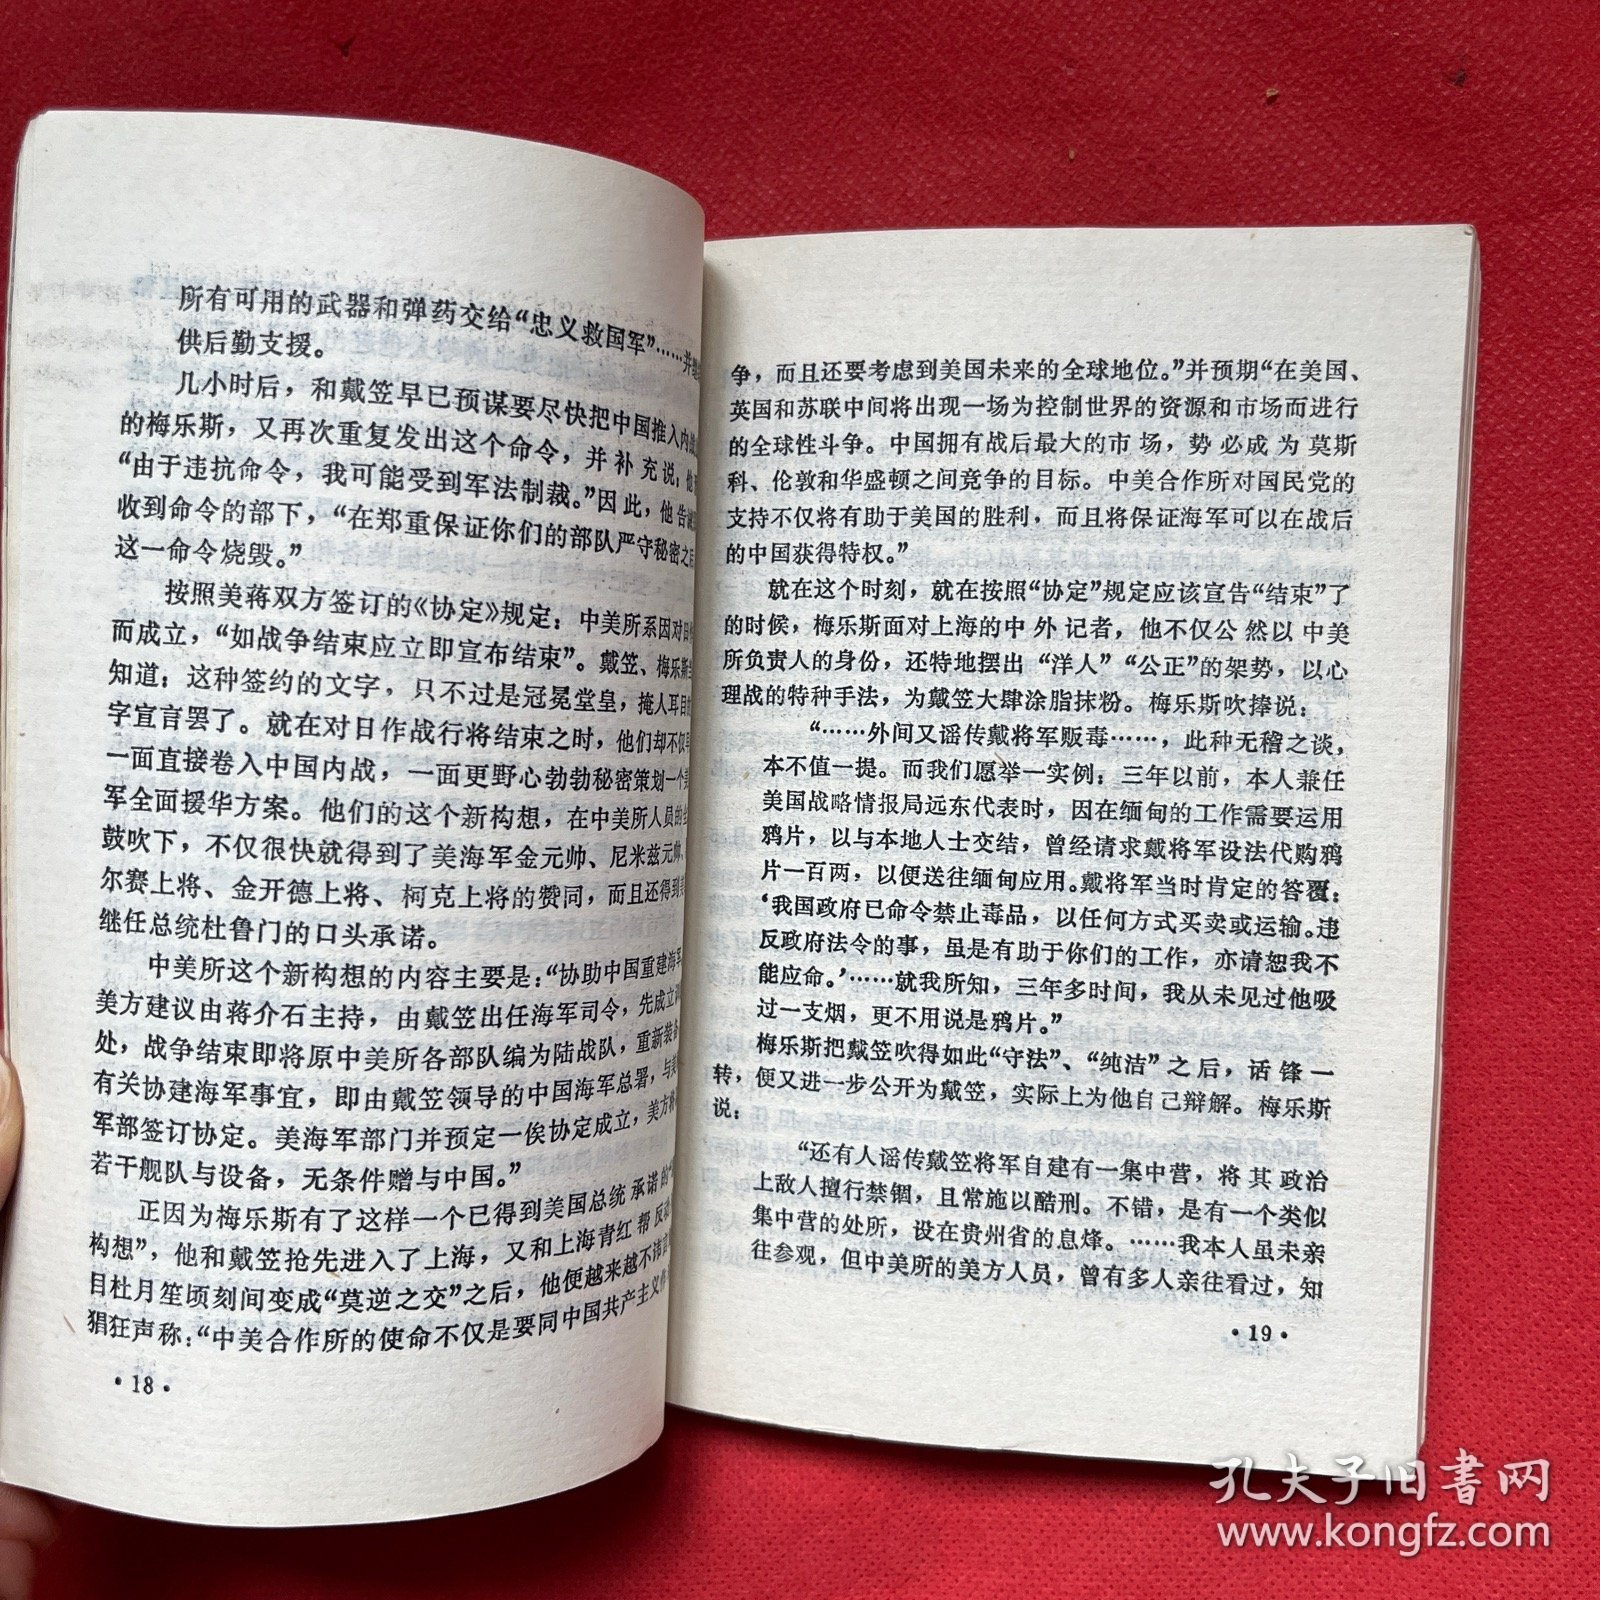 所有可用的武器和弹药交给“忠义救国军”……并
供后勤支援。
几小时后，和戴笠早已预谋要尽快把中国推入内战
的梅乐斯，又再次重复发出这个命令，并补充说：他
“由于违抗命令，我可能受到军法制裁。”因此，他告诫
收到命令的部下，“在郑重保证你们的部队严守秘密之后
这一命令烧毁。”
按照美蒋双方签订的《协定》规定：中美所系因对日
而成立，“如战争结束应立即宣布结束”。戴笠、梅乐斯
知道：这种签约的文字，只不过是冠冕堂皇，掩人耳目
字宣言罢了。就在对日作战行将结束之时，他们却不仅
一面直接卷入中国内战，一面更野心勃勃秘密策划一个
军全面援华方案。他们的这个新构想，在中美所人员的
鼓吹下，不仅很快就得到了美海军金元帅、尼米兹元帅、
尔赛上将、金开德上将、柯克上将的赞同，而且还得到
继任总统杜鲁门的口头承诺。
中美所这个新构想的内容主要是：“协助中国重建海军
美方建议由蒋介石主持，由戴笠出任海军司令，先成立
处，战争结束即将原中美所各部队编为陆战队，重新装备
有关协建海军事宜，即由戴笠领导的中国海军总署，与美
军部签订协定。美海军部门并预定一俟协定成立，美方将
若干舰队与设备，无条件赠与中国。”
正因为梅乐斯有了这样一个已得到美国总统承诺的“
构想”，他和戴笠抢先进入了上海，又和上海青红帮反动
目杜月笙顷刻间变成“莫逆之交”之后，他便越来越不讳言
猖狂声称：“中美合作所的使命不仅是要同中国共产主义作
·18·
争，而且还要考虑到美国未来的全球地位。”并预期“在美国、
英国和苏联中间将出现一场为控制世界的资源和市场而进行
的全球性斗争。中国拥有战后最大的市场，势必成为莫斯
科、伦敦和华盛顿之间竞争的目标。中美合作所对国民党的
支持不仅将有助于美国的胜利，而且将保证海军可以在战后
的中国获得特权。”
就在这个时刻，就在按照“协定”规定应该宣告“结束”了
的时候，梅乐斯面对上海的中外记者，他不仅公然以中美
所负责人的身份，还特地摆出“洋人”“公正”的架势，以心
理战的特种手法，为戴笠大肆涂脂抹粉。梅乐斯吹捧说：
“……外间又谣传戴将军贩毒……，此种无稽之谈，
本不值一提。而我们愿举一实例：三年以前，本人兼任
美国战略情报局远东代表时，因在缅甸的工作需要运用
鸦片，以与本地人士交结，曾经请求戴将军设法代购鸦
片一百两，以便送往缅甸应用。戴将军当时肯定的答覆：
‘我国政府已命令禁止毒品，以任何方式买卖或运输。违
反政府法令的事，虽是有助于你们的工作，亦请恕我不
能应命。’……就我所知，三年多时间，我从未见过他吸
过一支烟，更不用说是鸦片。”
梅乐斯把戴笠吹得如此“守法”、“纯洁”之后，话锋一
转，便又进一步公开为戴笠，实际上为他自己辩解。梅乐斯
说：
“还有人谣传戴笠将军自建有一集中营，将其政治
上敌人擅行禁锢，且常施以酷刑。不错，是有一个类似
集中营的处所，设在贵州省的息烽。……我本人虽未亲
往参观，但中美所的美方人员，曾有多人亲往看过，知
·19·
孔夫子旧书网
www.kongfz.com